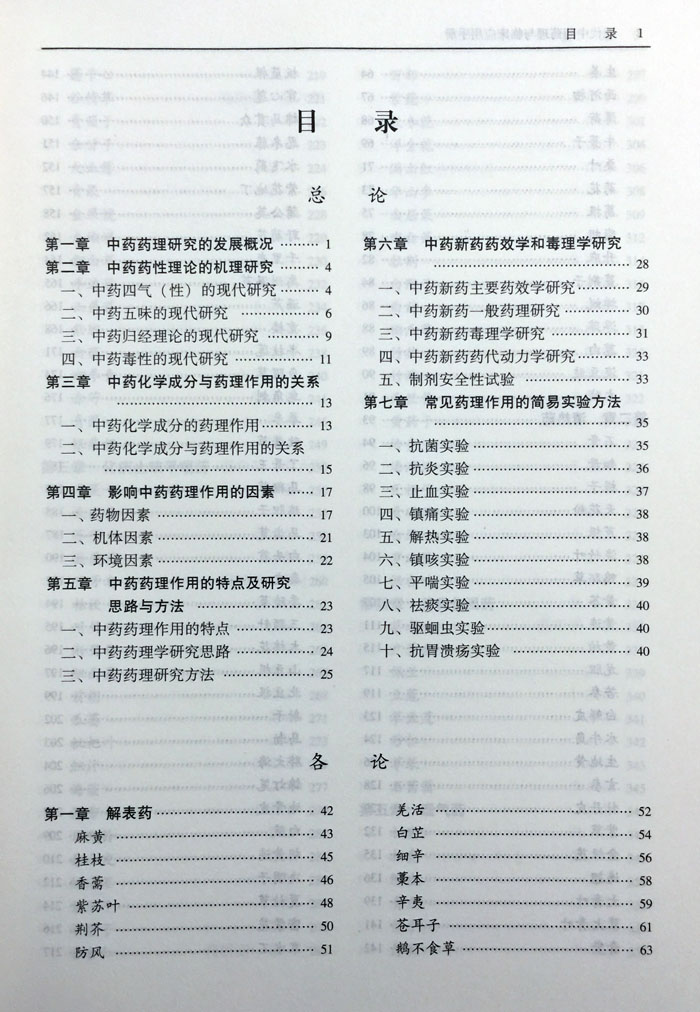 目 录 1
目 录
总 论
第一章 中药药理研究的发展概况 ……… 1
第二章 中药药性理论的机理研究 ……… 4
一、中药四气（性）的现代研究 ……… 4
二、中药五味的现代研究 ……… 6
三、中药归经理论的现代研究 ……… 9
四、中药毒性的现代研究 ……… 11
第三章 中药化学成分与药理作用的关系
……… 13
一、中药化学成分的药理作用 ……… 13
二、中药化学成分与药理作用的关系
……… 15
第四章 影响中药药理作用的因素 ……… 17
一、药物因素 ……… 17
二、机体因素 ……… 21
三、环境因素 ……… 22
第五章 中药药理作用的特点及研究
思路与方法 ……… 23
一、中药药理作用的特点 ……… 23
二、中药药理学研究思路 ……… 24
三、中药药理研究方法 ……… 25
第六章 中药新药药效学和毒理学研究
……… 28
一、中药新药主要药效学研究 ……… 29
二、中药新药一般药理研究 ……… 30
三、中药新药毒理学研究 ……… 31
四、中药新药药代动力学研究 ……… 33
五、制剂安全性试验 ……… 33
第七章 常见药理作用的简易实验方法
……… 35
一、抗菌实验 ……… 35
二、抗炎实验 ……… 36
三、止血实验 ……… 37
四、镇痛实验 ……… 38
五、解热实验 ……… 38
六、镇咳实验 ……… 38
七、平喘实验 ……… 39
八、祛痰实验 ……… 40
九、驱蛔虫实验 ……… 40
十、抗胃溃疡实验 ……… 40
各 论
第一章 解表药 ……… 42
麻黄 ……… 43
桂枝 ……… 45
香薷 ……… 46
紫苏叶 ……… 48
荆芥 ……… 50
防风 ……… 51
羌活 ……… 52
白芷 ……… 54
细辛 ……… 56
藁本 ……… 58
辛夷 ……… 59
苍耳子 ……… 61
鹅不食草 ……… 63